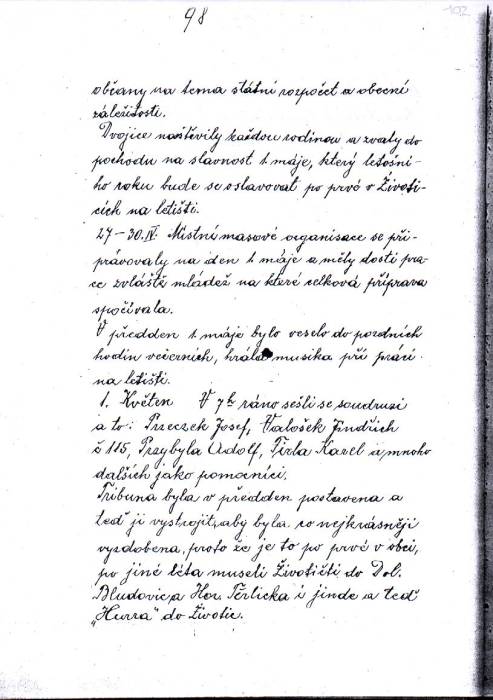 98
102
občany na tema státní rozpočet a obecní
záležitosti.
Dvojice navštívily každou rodinou a zvaly do
pochodu na slavnost 1. máje, který letošní-
ho roku bude se oslavovat po prvé v Životi-
cích na letišti.
27-30. IV. Místní masové organisace se při-
pravovaly na den 1. máje a měly dosti prá-
ce zvláště mládež na které celková příprava
spočívala.
V předden 1. máje bylo veselo do pozdních
hodin večerních, hrála musika při práci
na letišti.
1. Květen V 7h ráno sešli se soudruzi
a to: Przeczek Josef, Valošek Jindřich
č 115, Przybyla Adolf, Firla Karel a mnoho
dalších jako pomocníci.
Tribuna byla v předden postavena a
teď ji vystrojit, aby byla co nejkrásněji
vyzdobena, proto že je to po prvé v obci,
po jiné léta museli Životičti do Dol.
Bludovic a Hor. Těrlicka i jinde a teď
„Hurra" do Životic.